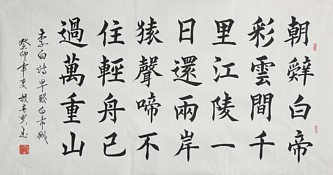 朝辤白帝
彩雲間千
里江陵一
日還兩岸
猿聲啼不
住輕舟已
過萬重山
李白詩早發白帝城
癸卯年